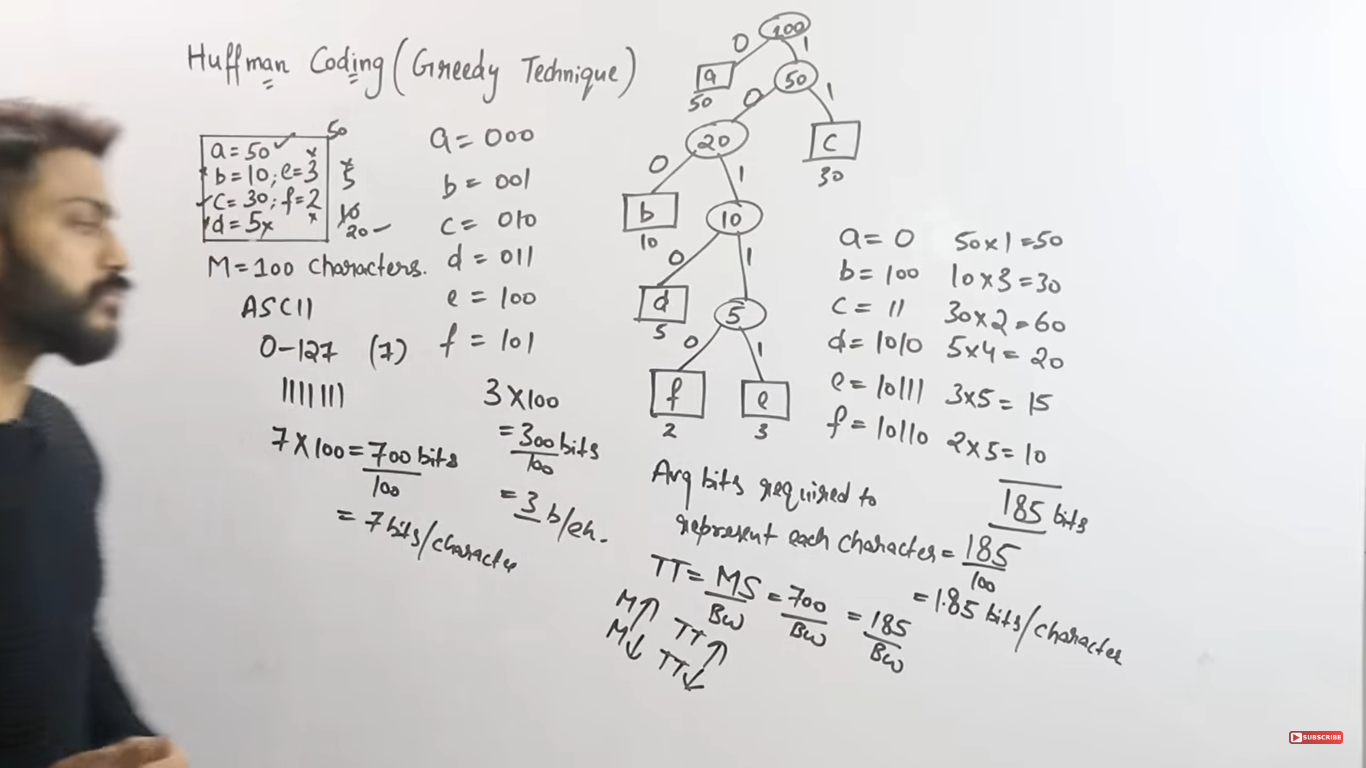 Huffman Coding (Greedy Technique)
50
a=50
b=10; e=3
c=30; f=2
d=5
5
10
20
M=100 characters.
ASCII
0-127 (7)
1111111
7×100=700 bits
100
= 7 bits/character
a= 000
b= 001
c= 010
d = 011
e = 100
f = 101
3×100
=300 bits
100
=3 b/ch.
100
0 1
a
50
50
0 1
20
C
30
0 1
b
10
10
0 1
d
5
5
0 1
f
2
e
3
a= 0 50×1=50
b= 100 10×3=30
c= 11 30×2=60
d= 1010 5×4= 20
e= 10111 3×5= 15
f= 10110 2×5= 10
185 bits
Avg bits required to
represent each character= 185
100
=1.85 bits/character
TT= MS = 700 = 185
BW BW BW
M↑ TT↑
M↓ TT↓
SUBSCRIBE